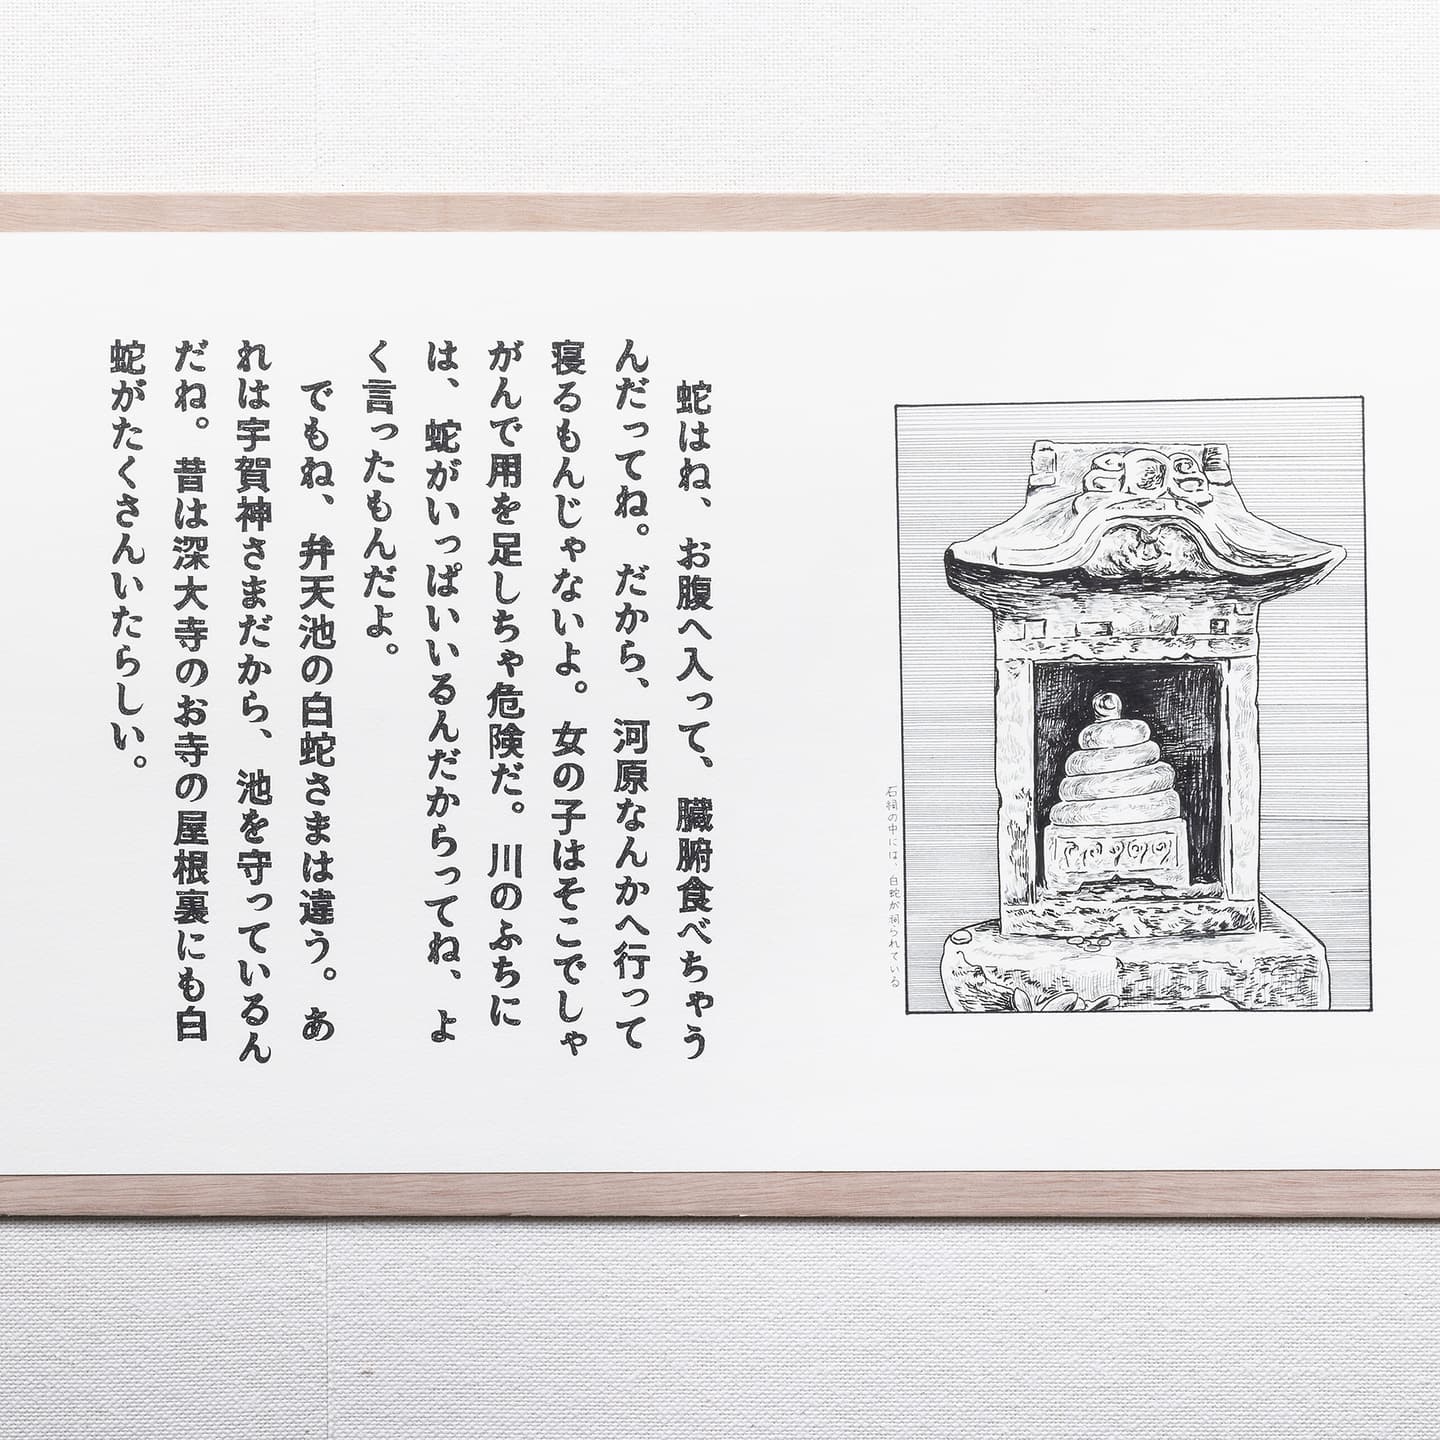 石祠の中には、白蛇が祠られている
蛇はね、お腹へ入って、臓腑食べちゃう
んだってね。だから、河原なんかへ行って
寝るもんじゃないよ。女の子はそこでしゃ
がんで用を足しちゃ危険だ。川のふちに
は、蛇がいっぱいいるんだからってね、よ
く言ったもんだよ。
でもね、弁天池の白蛇さまは違う。あ
れは宇賀神さまだから、池を守っているん
だね。昔は深大寺のお寺の屋根裏にも白
蛇がたくさんいたらしい。